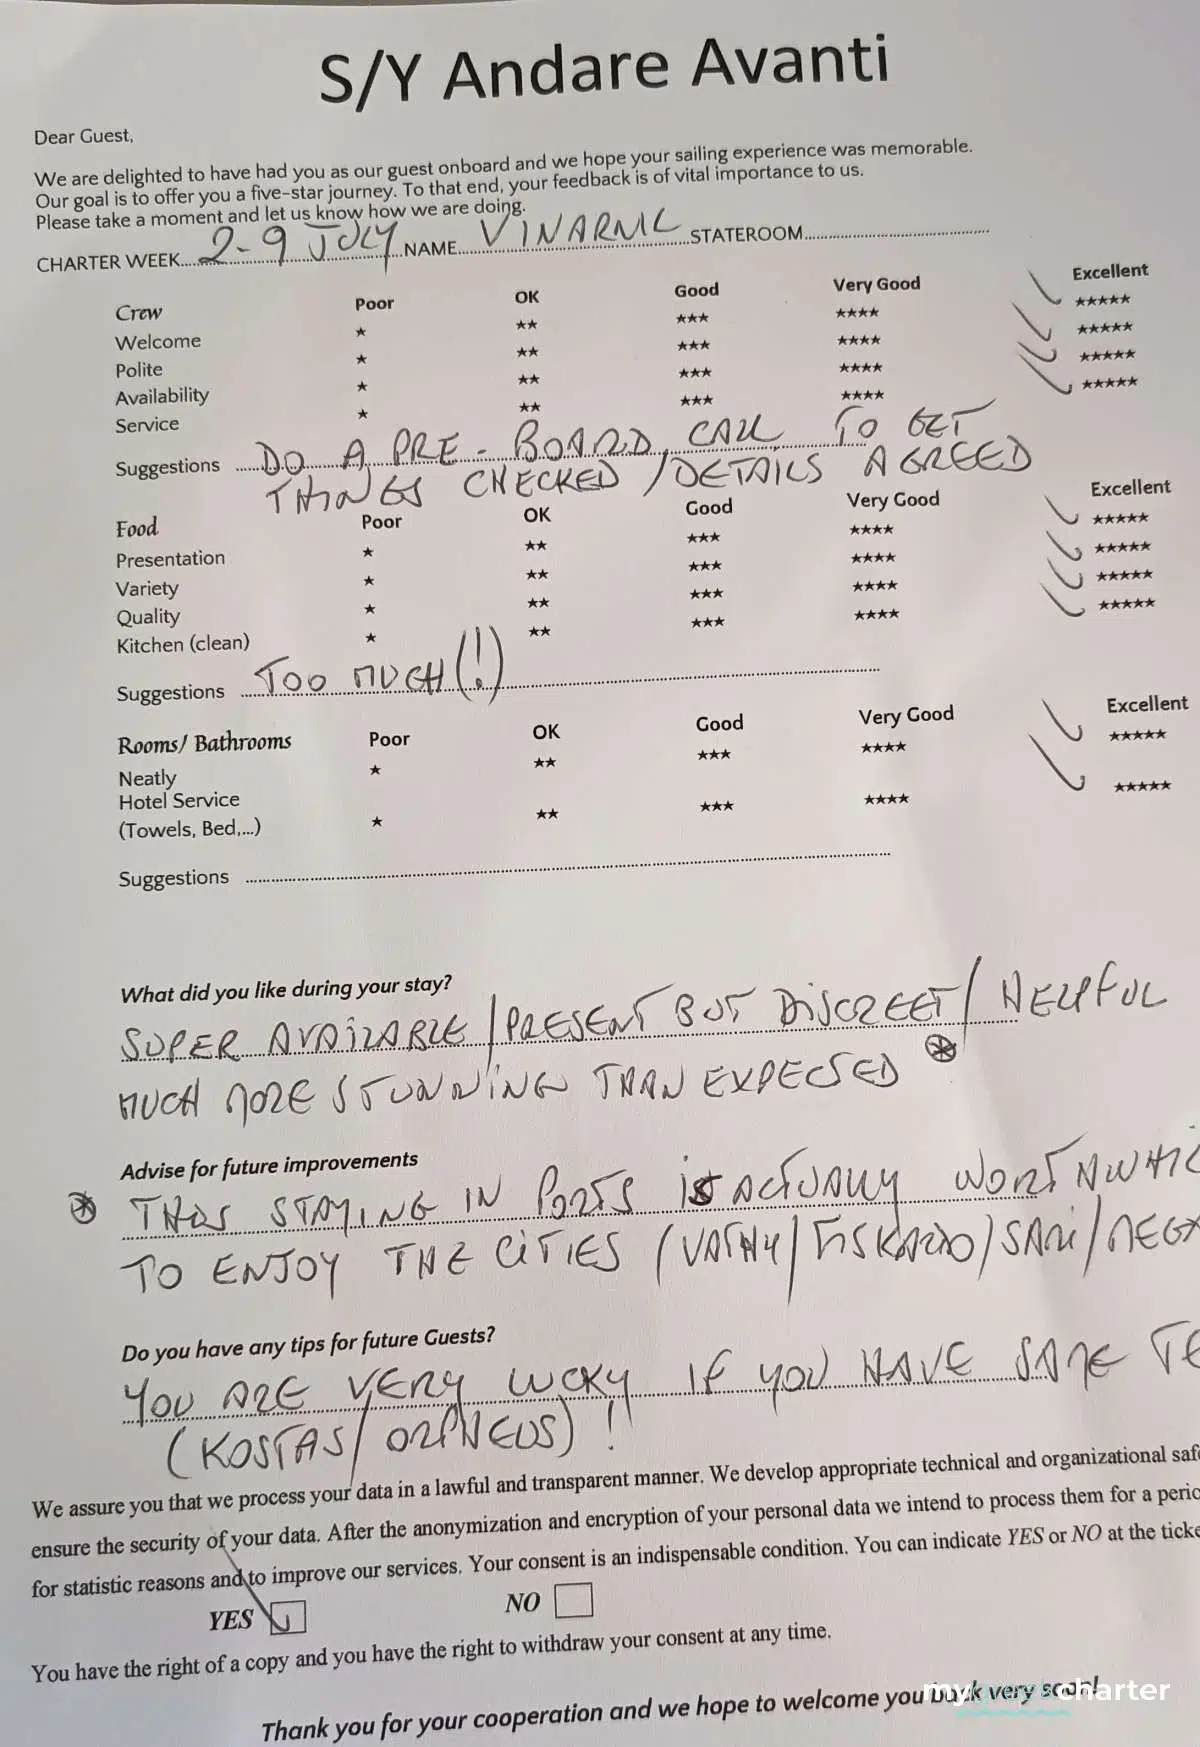 S/Y Andare Avanti
Dear Guest,
We are delighted to have had you as our guest onboard and we hope your sailing experience was memorable.
Our goal is to offer you a five-star journey. To that end, your feedback is of vital importance to us.
Please take a moment and let us know how we are doing.
CHARTER WEEK 2-9 JULY NAME VINARNIC STATEROOM
Crew Poor OK Good Very Good Excellent
Welcome ★ ★★ ★★★ ★★★★ ★★★★★
Polite ★ ★★ ★★★ ★★★★ ★★★★★
Availability ★ ★★ ★★★ ★★★★ ★★★★★
Service ★ ★★ ★★★ ★★★★ ★★★★★
Suggestions DO A PRE-BOARD CALL TO GET
THINGS CHECKED / DETAILS AGREED
Food Poor OK Good Very Good Excellent
Presentation ★ ★★ ★★★ ★★★★ ★★★★★
Variety ★ ★★ ★★★ ★★★★ ★★★★★
Quality ★ ★★ ★★★ ★★★★ ★★★★★
Kitchen (clean) ★ ★★ ★★★ ★★★★ ★★★★★
Suggestions TOO MUCH (!)
Rooms/ Bathrooms Poor OK Good Very Good Excellent
Neatly ★ ★★ ★★★ ★★★★ ★★★★★
Hotel Service
(Towels, Bed,...) ★ ★★ ★★★ ★★★★ ★★★★★
Suggestions
What did you like during your stay?
SUPER AVAILABLE / PRESENT BUT DISCREET / HELPFUL
MUCH MORE STUNNING THAN EXPECTED *
Advise for future improvements
* THAS STAYING IN PORTS IS ACTUALLY WORTAWHIL
TO ENJOY THE CITIES (VATHY / FISKARDO / SAMI / MEGA
Do you have any tips for future Guests?
YOU ARE VERY LUCKY IF YOU HAVE SAME TE
(KOSTAS / ORPHEUS) !
We assure you that we process your data in a lawful and transparent manner. We develop appropriate technical and organizational safe
ensure the security of your data. After the anonymization and encryption of your personal data we intend to process them for a perio
for statistic reasons and to improve our services. Your consent is an indispensable condition. You can indicate YES or NO at the ticke
YES NO
You have the right of a copy and you have the right to withdraw your consent at any time.
Thank you for your cooperation and we hope to welcome you back very soon!
my charter